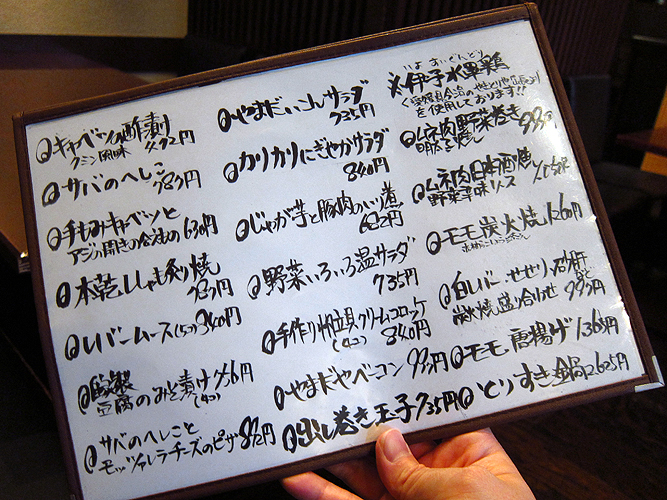 キャベツの酢漬け
クミン風味 472円
サバのへしこ
783円
手もみキャベツと
アジの開きの合えもの 630円
本乾ししゃも炙り焼
735円
レバームース(5コ) 340円
自家製
豆腐のみそ漬け 456円
(4コ)
サバのへしこと
モッツァレラチーズのピザ 872円
やまだいこんサラダ
735円
カリカリにぎやかサラダ
840円
じゃが芋と豚肉のいり煮
682円
野菜いろいろ温サラダ
735円
手作りクリームコロッケ
(4コ) 840円
やまだやベーコン 993円
出し巻き玉子 735円
いよ すいぐんどり
伊予水軍鶏
を使用しております!!
ムネ肉野菜巻き
明太焼 993円
ムネ肉日本酒焼
野菜薬味ソース
モモ炭火焼 1260円
白レバー・せせり・砂肝
炭火焼盛り合わせ 993円
モモ唐揚げ 1,365円
とりすき鍋 2,625円